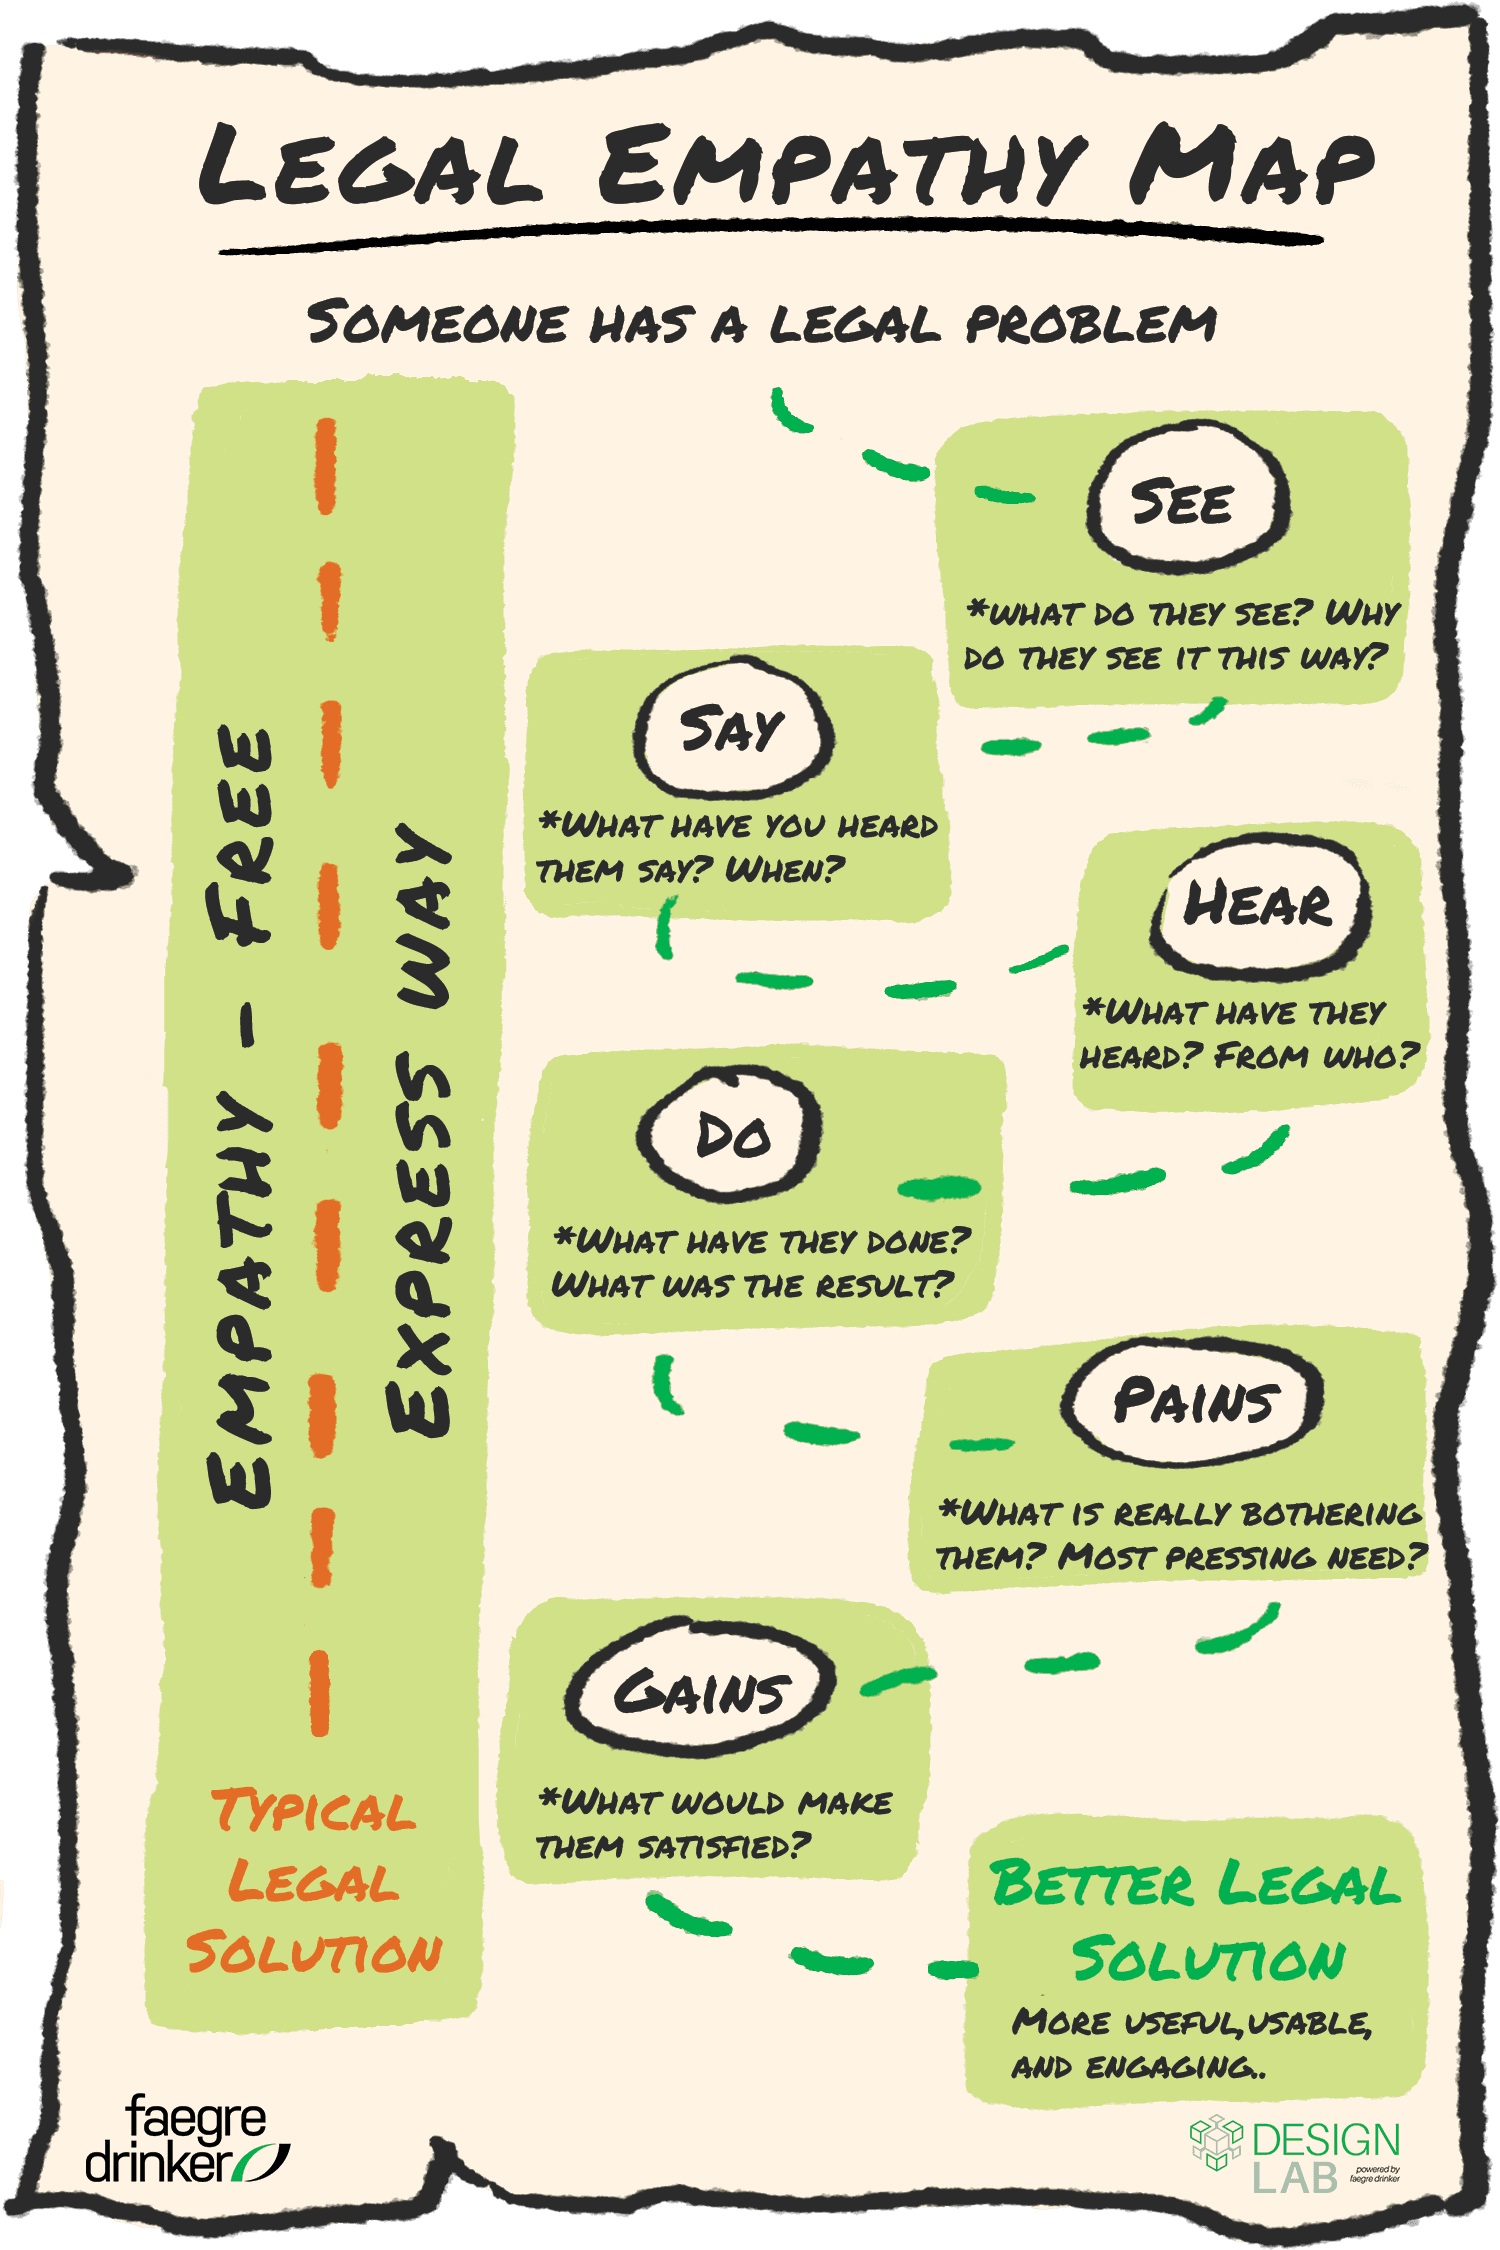 Legal Empathy Map
Someone has a legal problem
Empathy - Free
Express Way
Typical
Legal
Solution
See
*What do they see? Why
do they see it this way?
Say
*What have you heard
them say? When?
Hear
*What have they
heard? From who?
Do
*What have they done?
What was the result?
Pains
*What is really bothering
them? Most pressing need?
Gains
*What would make
them satisfied?
Better Legal
Solution
More useful,usable,
and engaging..
faegre
drinker
DESIGN
LAB
powered by
faegre drinker